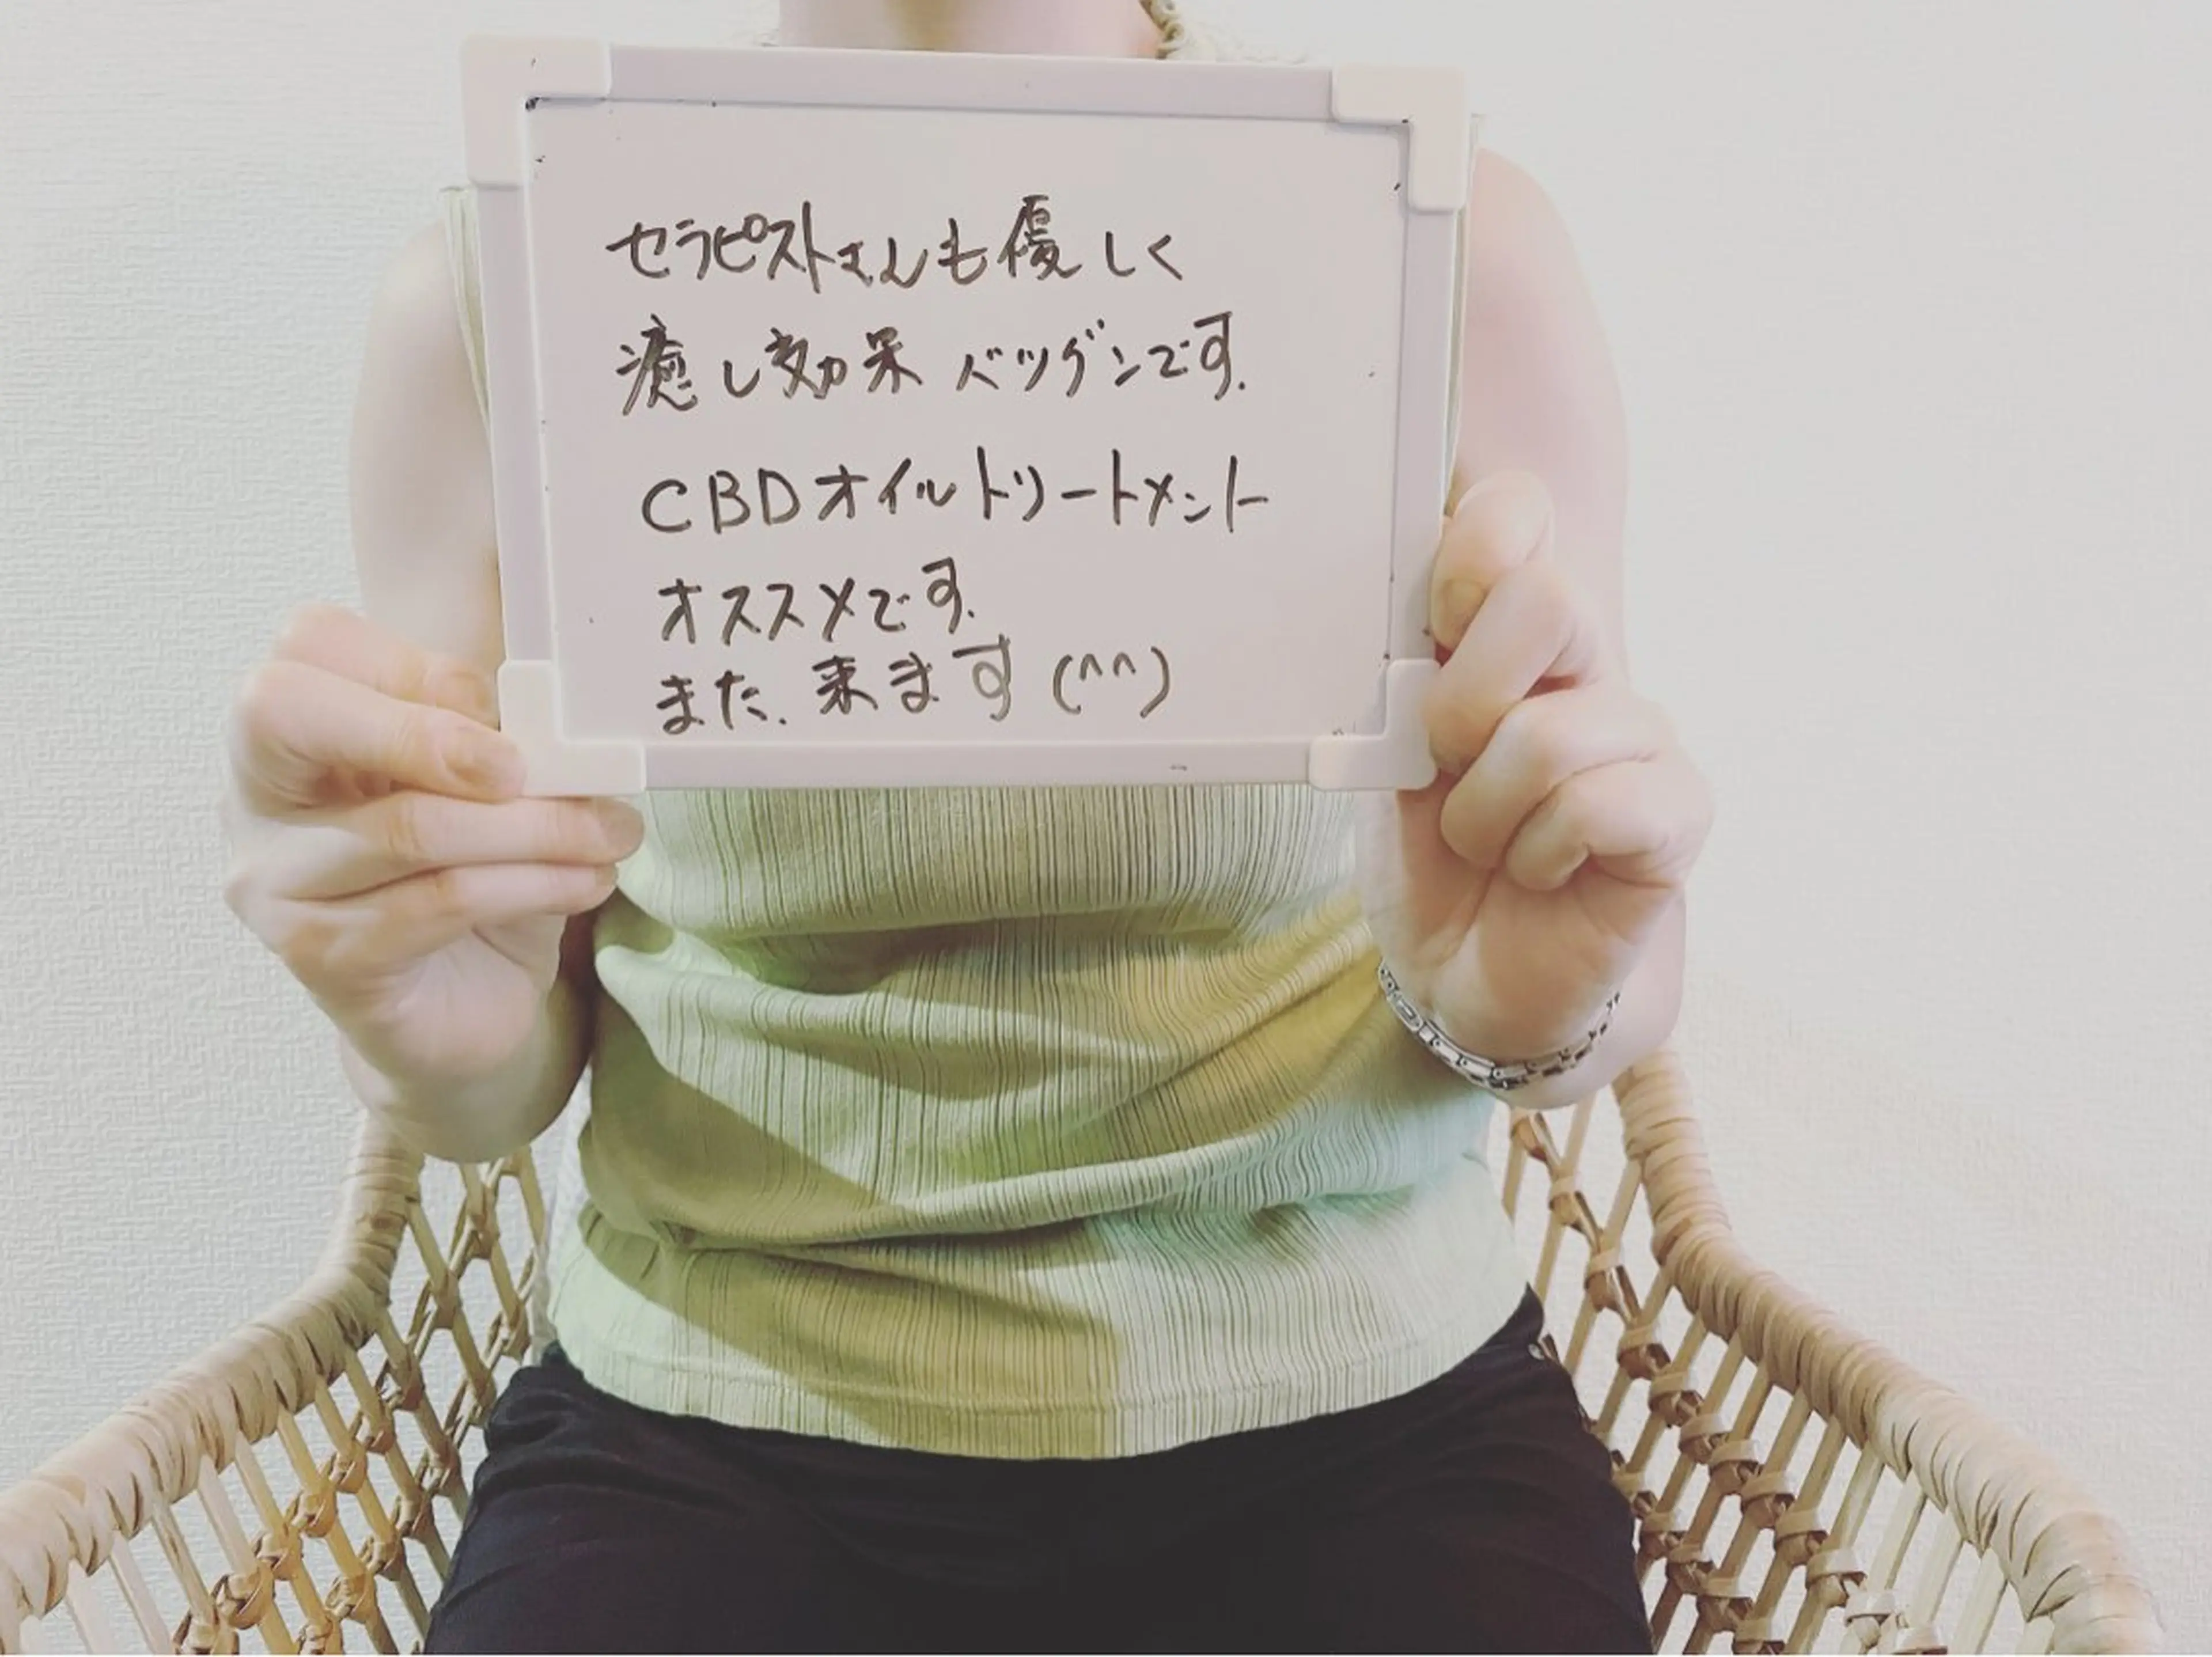 セラピストさんも優しく
癒し効果バツグンです.
CBDオイルトリートメント
オススメです.
また.来ます(^^)